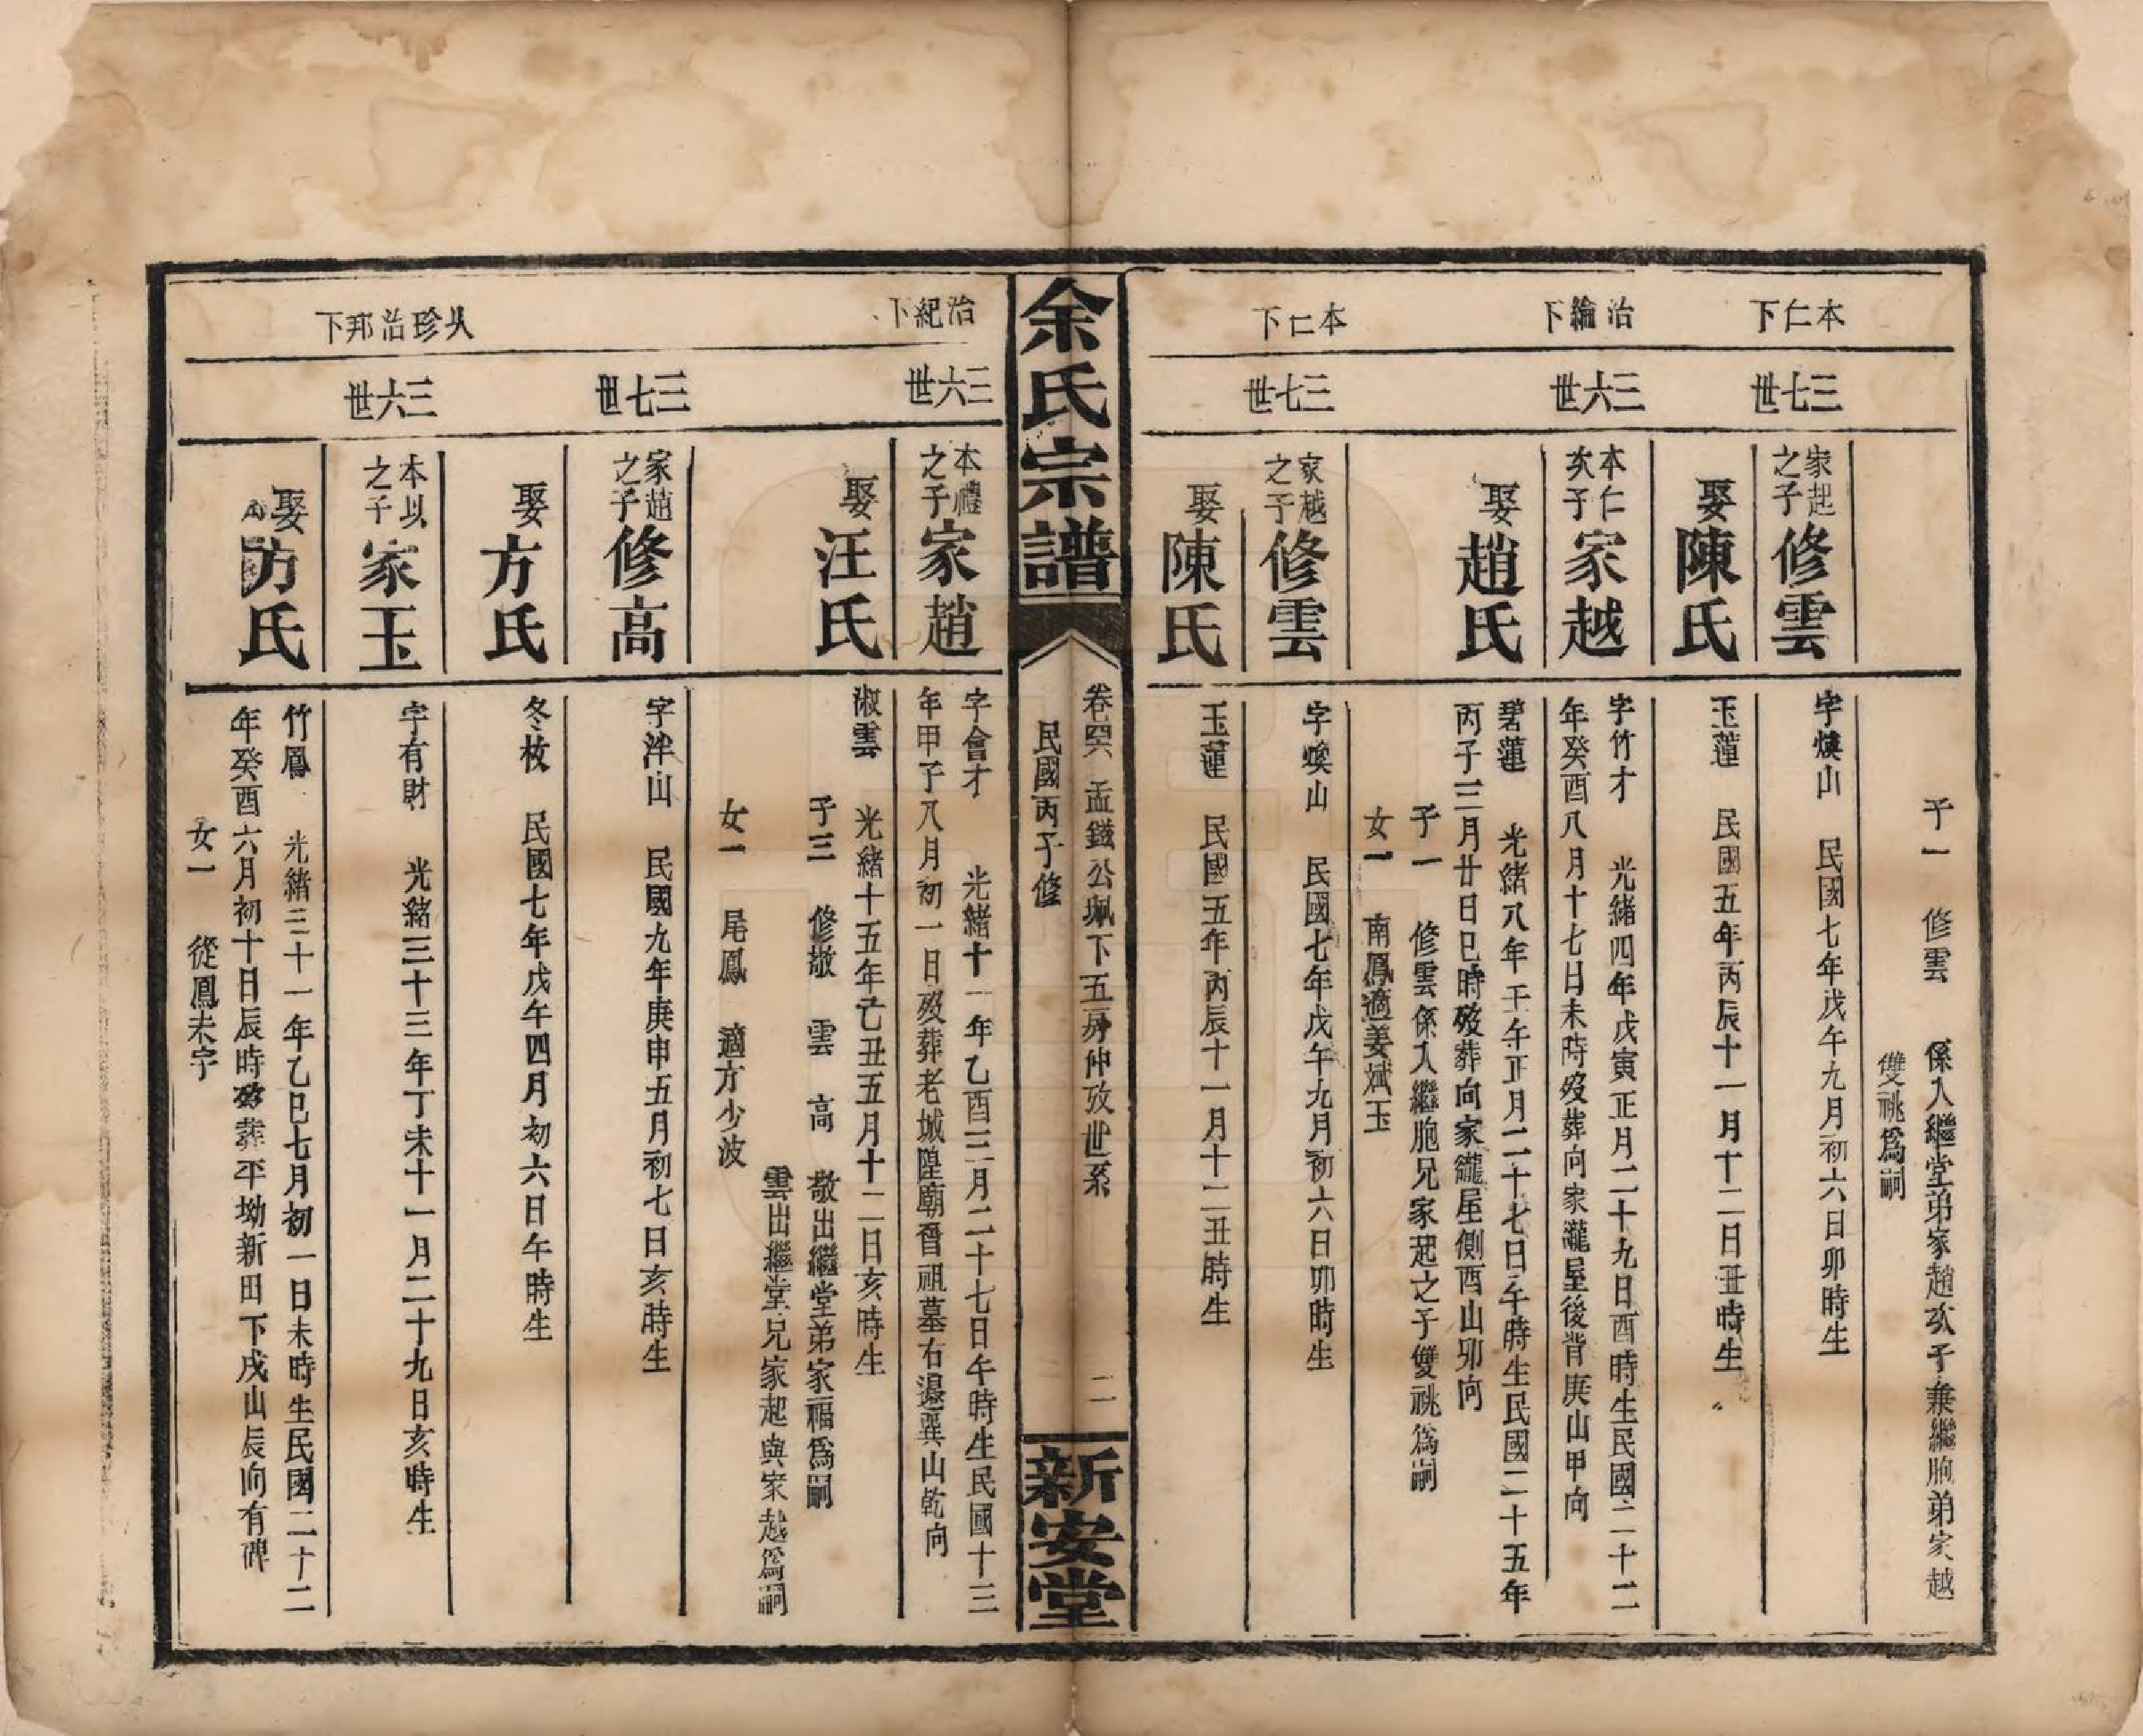 本仁下
治綸下
本仁下
三七世
三六世
三七世
子一 修雲 係入繼堂弟家趙次子兼繼胞弟家越
雙祧爲嗣
家起之子修雲
字煥山 民國七年戊午九月初六日卯時生
娶陳氏
玉蓮 民國五年丙辰十一月十二日丑時生
本仁次子家越
字竹才 光緒四年戊寅正月二十九日酉時生民國二十二
年癸酉八月十七日未時歿葬向家瀧屋後背庚山甲向
娶趙氏
碧蓮 光緒八年壬午正月二十七日午時生民國二十五年
丙子三月廿日巳時歿葬向家瀧屋側酉山卯向
子一 修雲係入繼胞兄家起之子雙祧爲嗣
女一 南鳳適姜斌玉
家越之子修雲
字煥山 民國七年戊午九月初六日卯時生
娶陳氏
玉蓮 民國五年丙辰十一月十二丑時生
余氏宗譜
卷四六 孟鎡公珮下五房仲攻世系
民國丙子修
二
新安堂
治紀下
以珍治邦下
三六世
三七世
三六世
本禮之子家趙
字會才 光緒十一年乙酉三月二十七日午時生民國十三
年甲子八月初一日歿葬老城隍廟晉祖墓右邊巽山乾向
娶汪氏
淑雲 光緒十五年己丑五月十二日亥時生
子三 修敬 雲 高 敬出繼堂弟家福爲嗣
雲出繼堂兄家起與家越爲嗣
女一 尾鳳 適方少波
家趙之子修高
字泮山 民國九年庚申五月初七日亥時生
娶方氏
冬枚 民國七年戊午四月初六日午時生
本以之子家玉
字有財 光緒三十三年丁未十一月二十九日亥時生
娶方氏
竹鳳 光緒三十一年乙巳七月初一日未時生民國二十二
年癸酉六月初十日辰時歿葬平坳新田下戌山辰向有碑
女一 從鳳未字